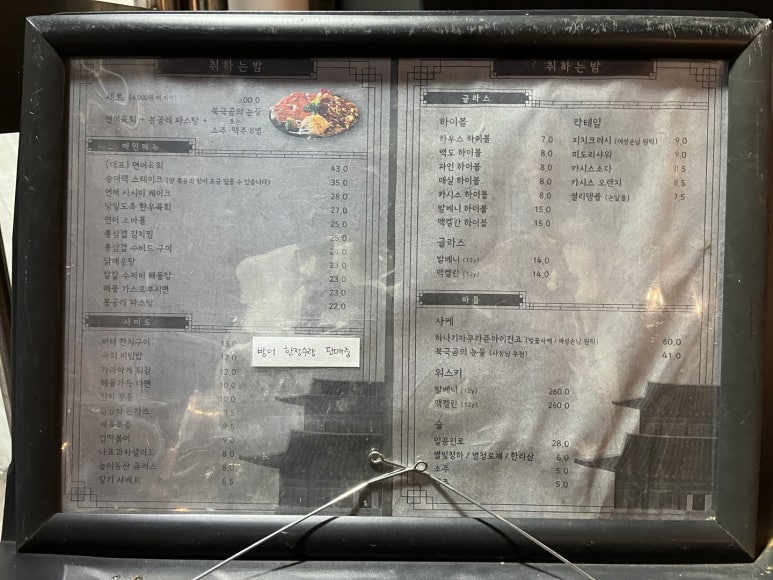 취하는밤
세트
연어육회 + 봉골레 파스탕 +
북극곰의 눈물
또는
소주·맥주 8병
메인메뉴
(대표) 연어육회 43.0
숄더랙 스테이크 (양 특유의 향이 조금 있을 수 있습니다) 35.0
연어 사시미 케이크 28.0
당일도축 한우육회 27.0
연어 소바롤 25.0
통삼겹 김치찜 25.0
통삼겹 수비드 구이
닭매운탕 23.0
칼칼 수제비 해물탕 23.0
해물 가스오부시면 23.0
봉골레 파스탕 22.0
사이드
버터 한치구이 13.0
육회 비빔밥 12.0
가라아게 튀김 12.0
해물가득 라면 10.0
우동 10.0
돈가스 9.5
9.5
컵떡볶이 9.0
나초과자샐러드 8.0
놀이동산 츄러스 8.0
딸기 샤베트 6.5
방어 한정수량 판매중
취하는밤
글라스
하이볼
하우스 하이볼 7.0
백도 하이볼 8.0
파인 하이볼 8.0
매실 하이볼 8.0
카시스 하이볼 8.0
발베니 하이볼 15.0
맥켈란 하이볼 15.0
칵테일
피치크러시 (여성손님 원픽) 9.0
미도리샤워 9.0
카시스소다 8.5
카시스 오렌지 8.5
셜리템플 (논알콜) 7.5
글라스
발베니 (12y) 14.0
맥켈란 (12y) 14.0
바틀
사케
하나키자쿠라준마이긴죠 (벚꽃사케 / 여성손님 원픽) 60.0
북극곰의 눈물 (사장님 추천) 41.0
위스키
발베니 (12y) 260.0
맥켈란 (12y) 260.0
술
일품진로 28.0
별빛청하 / 별청로제 / 한라산 6.0
소주 5.0
5.0